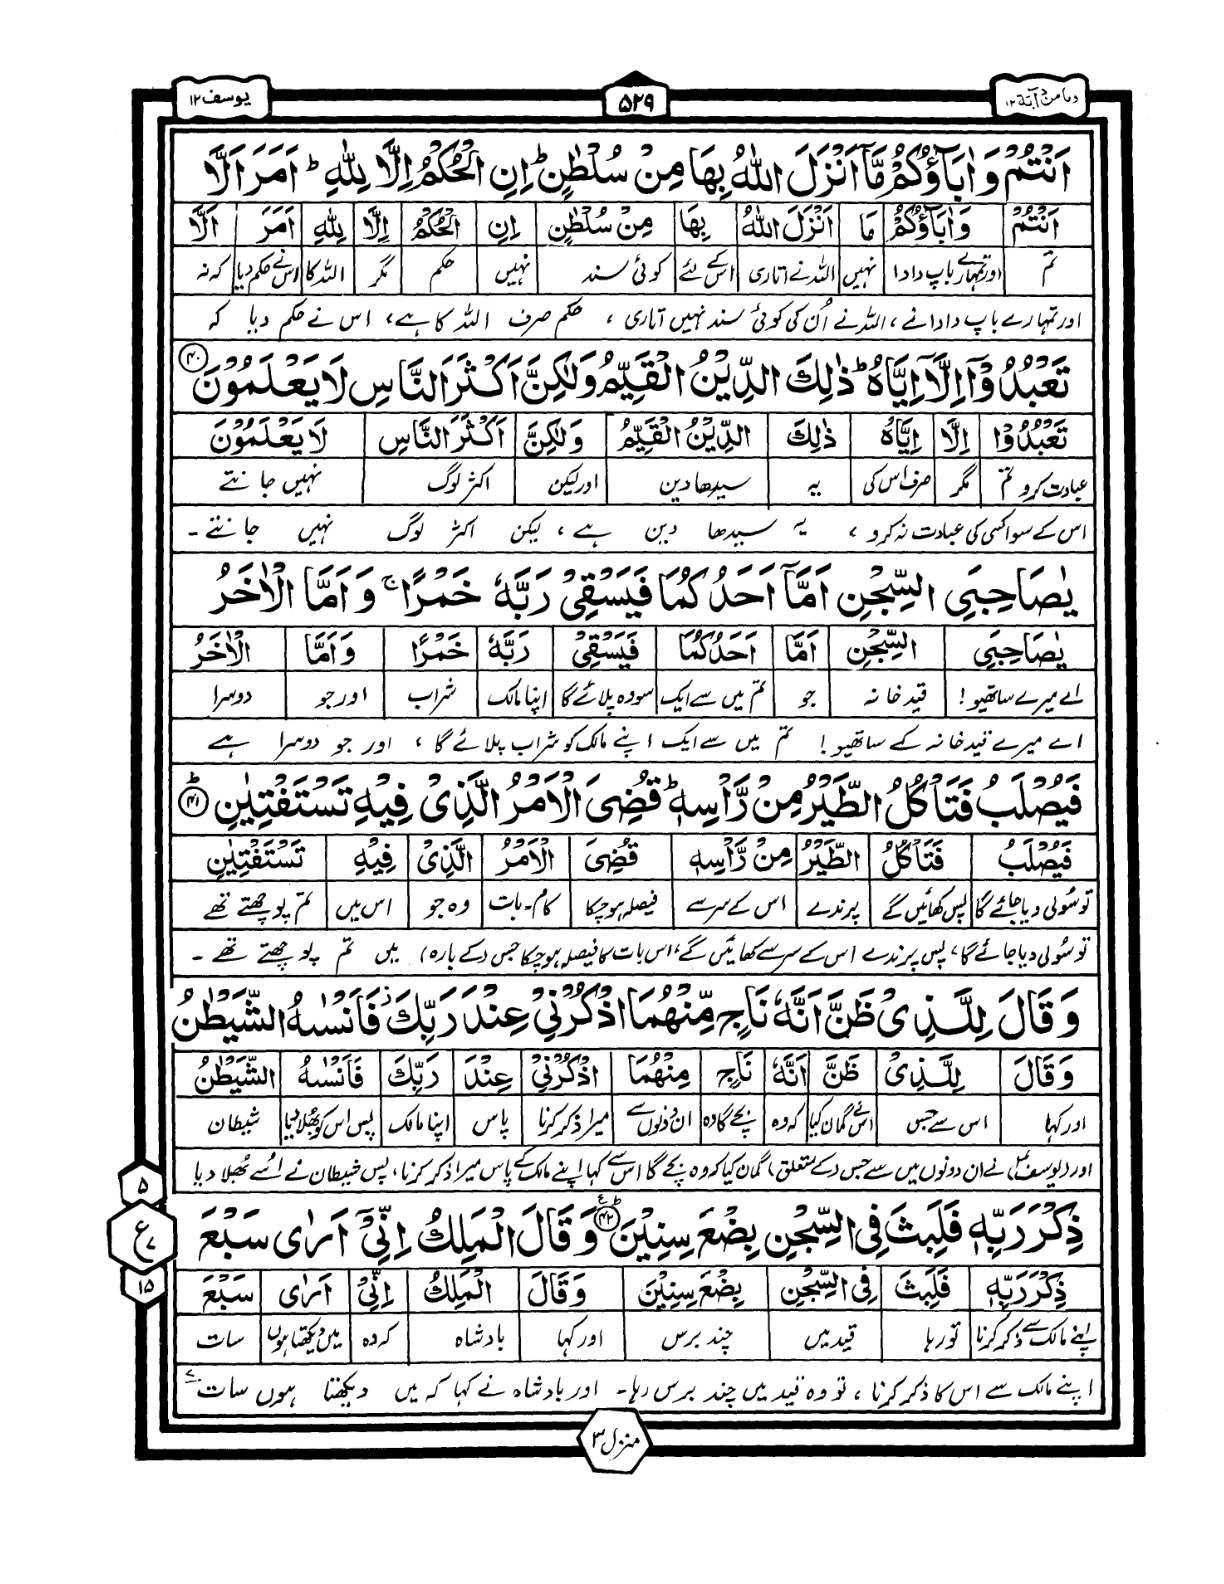 وما من دآبة ۱۲
۵۲۹
یوسف ۱۲
اَنْتُمْ وَاٰبَآؤُكُمْ مَّآ اَنْزَلَ اللّٰهُ بِهَا مِنْ سُلْطٰنٍ ؕ اِنِ الْحُكْمُ اِلَّا لِلّٰهِ ؕ اَمَرَ اَلَّا
اَنْتُمْ وَاٰبَآؤُكُمْ مَا اَنْزَلَ اللّٰهُ بِهَا مِنْ سُلْطٰنٍ اِنِ الْحُكْمُ اِلَّا لِلّٰهِ اَمَرَ اَلَّا
تم اور تمہارے باپ دادا نہیں اللہ نے اتاری اس کے لئے کوئی سند نہیں حکم مگر اللہ کا اس نے حکم دیا کہ نہ
اور تمہارے باپ دادا نے، اللہ نے اُن کی کوئی سند نہیں اتاری ، حکم صرف اللہ کا ہے، اس نے حکم دیا کہ
تَعْبُدُوْٓا اِلَّآ اِيَّاهُ ؕ ذٰلِكَ الدِّيْنُ الْقَيِّمُ وَلٰكِنَّ اَكْثَرَ النَّاسِ لَا يَعْلَمُوْنَ ﴿۴۰﴾
تَعْبُدُوْٓا اِلَّا اِيَّاهُ ذٰلِكَ الدِّيْنُ الْقَيِّمُ وَلٰكِنَّ اَكْثَرَ النَّاسِ لَا يَعْلَمُوْنَ
عبادت کرو تم مگر صرف اس کی یہ سیدھا دین اور لیکن اکثر لوگ نہیں جانتے
اس کے سوا کسی کی عبادت نہ کرو ، یہ سیدھا دین ہے ، لیکن اکثر لوگ نہیں جانتے ۔
يٰصَاحِبَيِ السِّجْنِ اَمَّآ اَحَدُكُمَا فَيَسْقِيْ رَبَّهٗ خَمْرًا ۚ وَاَمَّا الْاٰخَرُ
يٰصَاحِبَيِ السِّجْنِ اَمَّآ اَحَدُكُمَا فَيَسْقِيْ رَبَّهٗ خَمْرًا وَاَمَّا الْاٰخَرُ
اے میرے ساتھیو! قید خانہ جو تم میں سے ایک سو وہ پلائے گا اپنا مالک شراب اور جو دوسرا
اے میرے قید خانہ کے ساتھیو! تم میں سے ایک اپنے مالک کو شراب پلائے گا ، اور جو دوسرا ہے
فَيُصْلَبُ فَتَاْكُلُ الطَّيْرُ مِنْ رَّاْسِهٖ ؕ قُضِيَ الْاَمْرُ الَّذِيْ فِيْهِ تَسْتَفْتِيٰنِ ﴿۴۱﴾ؕ
فَيُصْلَبُ فَتَاْكُلُ الطَّيْرُ مِنْ رَّاْسِهٖ قُضِيَ الْاَمْرُ الَّذِيْ فِيْهِ تَسْتَفْتِيٰنِ
تو سُولی دیا جائے گا پس کھائیں گے پرندے اس کے سر سے فیصلہ ہو چکا کام۔بات وہ جو اس میں تم پوچھتے تھے
تو سُولی دیا جائے گا، پس پرندے اس کے سر سے کھائیں گے، اس بات کا فیصلہ ہو چکا جس (کے بارہ) میں تم پوچھتے تھے ۔
وَقَالَ لِلَّذِيْ ظَنَّ اَنَّهٗ نَاجٍ مِّنْهُمَا اذْكُرْنِيْ عِنْدَ رَبِّكَ ۡ فَاَنْسٰىهُ الشَّيْطٰنُ
وَقَالَ لِلَّذِيْ ظَنَّ اَنَّهٗ نَاجٍ مِنْهُمَا اذْكُرْنِيْ عِنْدَ رَبِّكَ فَاَنْسٰىهُ الشَّيْطٰنُ
اور کہا اس سے جس اس نے گمان کیا کہ وہ بچے گا وہ ان دونوں سے میرا ذکر کرنا پاس اپنا مالک پس اس کو بھلا دیا شیطان
اور (یوسفؑ) نے ان دونوں میں سے جس (کے متعلق) گمان کیا کہ وہ بچے گا اس سے کہا اپنے مالک کے پاس میرا ذکر کرنا، پس شیطان نے اُسے بُھلا دیا
ذِكْرَ رَبِّهٖ فَلَبِثَ فِي السِّجْنِ بِضْعَ سِنِيْنَ ﴿۴۲﴾ؕ وَقَالَ الْمَلِكُ اِنِّيْٓ اَرٰى سَبْعَ
ذِكْرَ رَبِّهٖ فَلَبِثَ فِي السِّجْنِ بِضْعَ سِنِيْنَ وَقَالَ الْمَلِكُ اِنِّيْٓ اَرٰى سَبْعَ
اپنے مالک سے ذکر کرنا تو رہا قید میں چند برس اور کہا بادشاہ کہ وہ میں دیکھتا ہوں سات
اپنے مالک سے اس کا ذکر کرنا ، تو وہ قید میں چند برس رہا۔ اور بادشاہ نے کہا کہ میں دیکھتا ہوں سات
۵
ع ۷
۱۵
منزل ۳